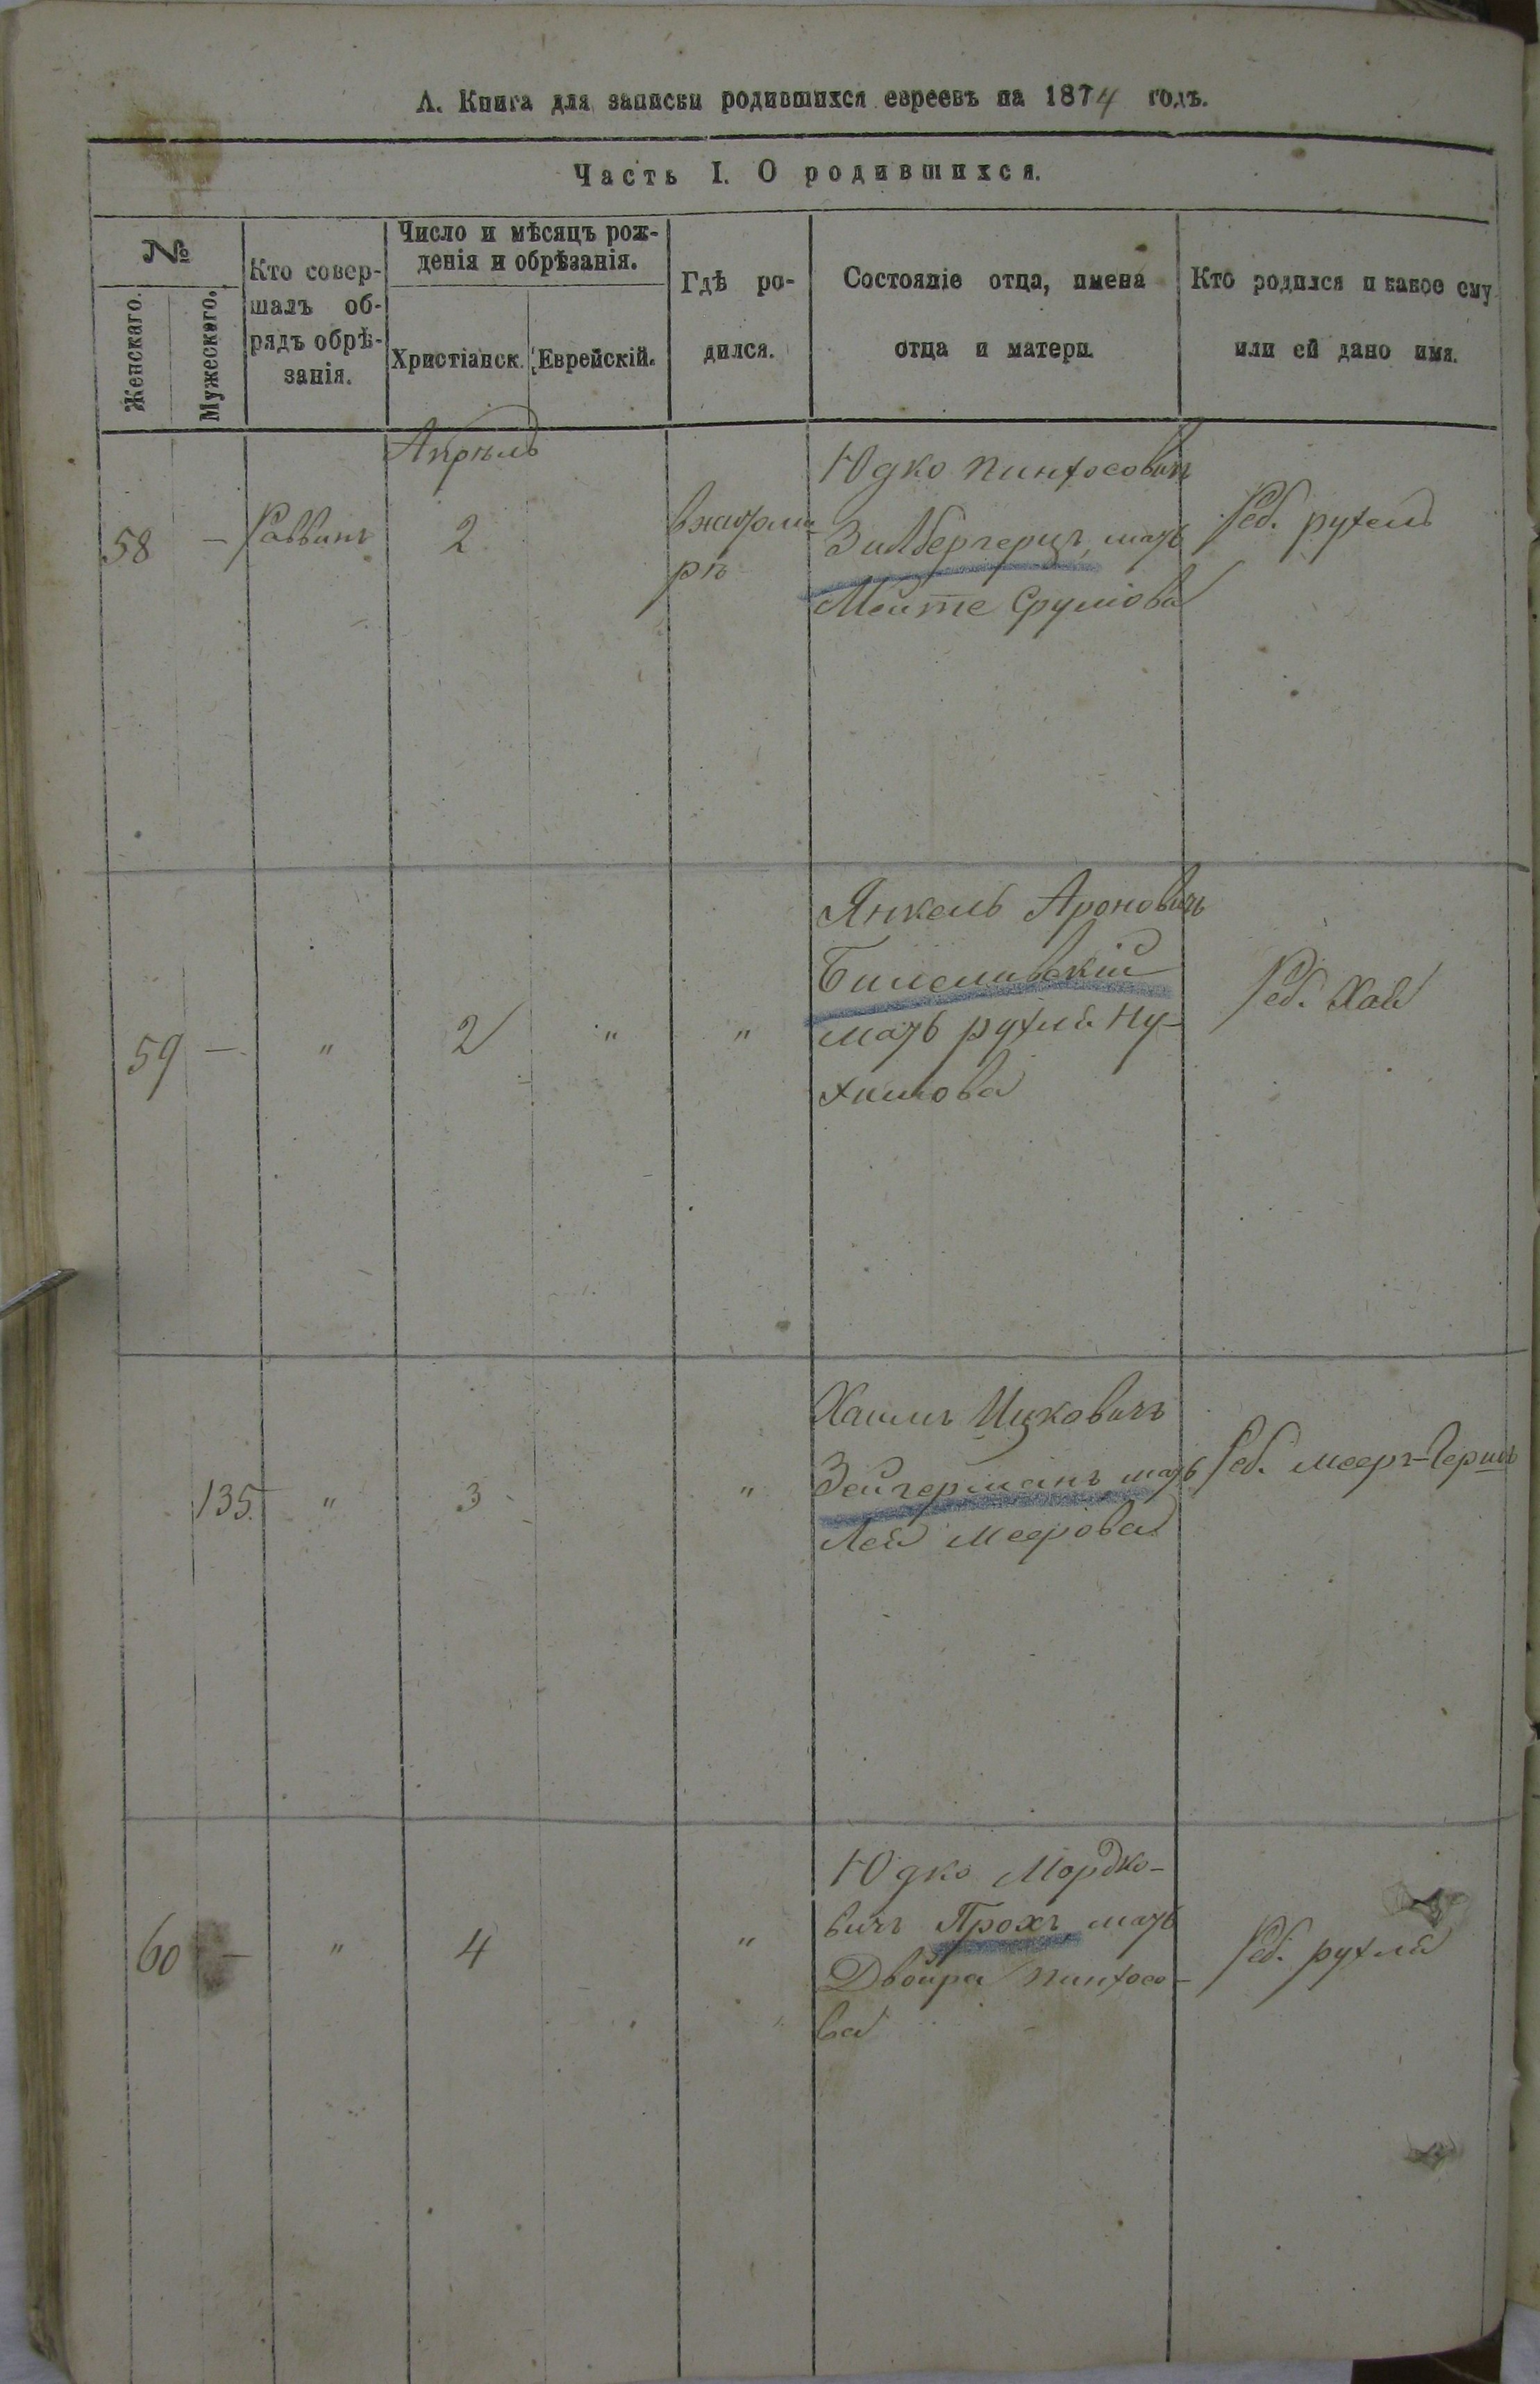 А. Книга для записки родившихся евреевъ на 1874 годъ.
Часть I. О родившихся.
№
Женскаго.
Мужескаго.
Кто совер-
шалъ об-
рядъ обрѣ-
занія.
Число и мѣсяцъ рож-
денія и обрѣзанія.
Христіанск.
Еврейскій.
Гдѣ ро-
дился.
Состояніе отца, имена
отца и матери.
Кто родился и какое ему
или ей дано имя.
Апрѣль
58 — Раввинъ 2
Юдко Пинхосовичъ
Зилбергерцъ, мать
Мейте Срулiова
Реб. рухель
59 — " 2 " "
Янкель Ароновичъ
Билемивскій
мать рухля Ну-
химова
Реб. Хая
135. " 3 "
Хаимъ Ицковичъ
Зейгерманъ мать
Лея Меерова
Реб. мееръ-Гершъ
60 — " 4 "
Юдко Мордко-
вичъ Прохъ, мать
Двойра Пинхосо-
ва
Реб. рухля